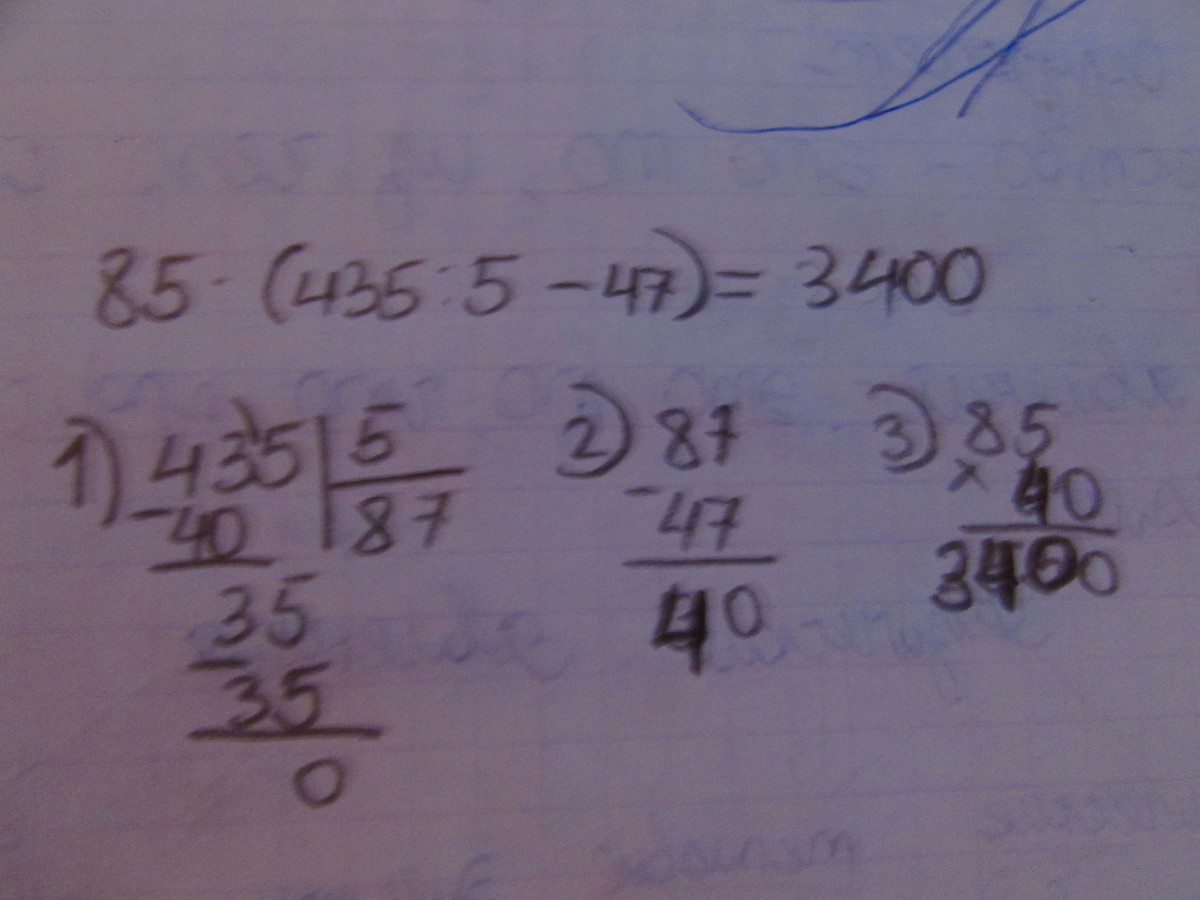 85 · (435 : 5 - 47) = 3400
1) 435 | 5
2) 87
3) 85
- 40 | 87
- 47
× 40
35
40
3400
- 35
0